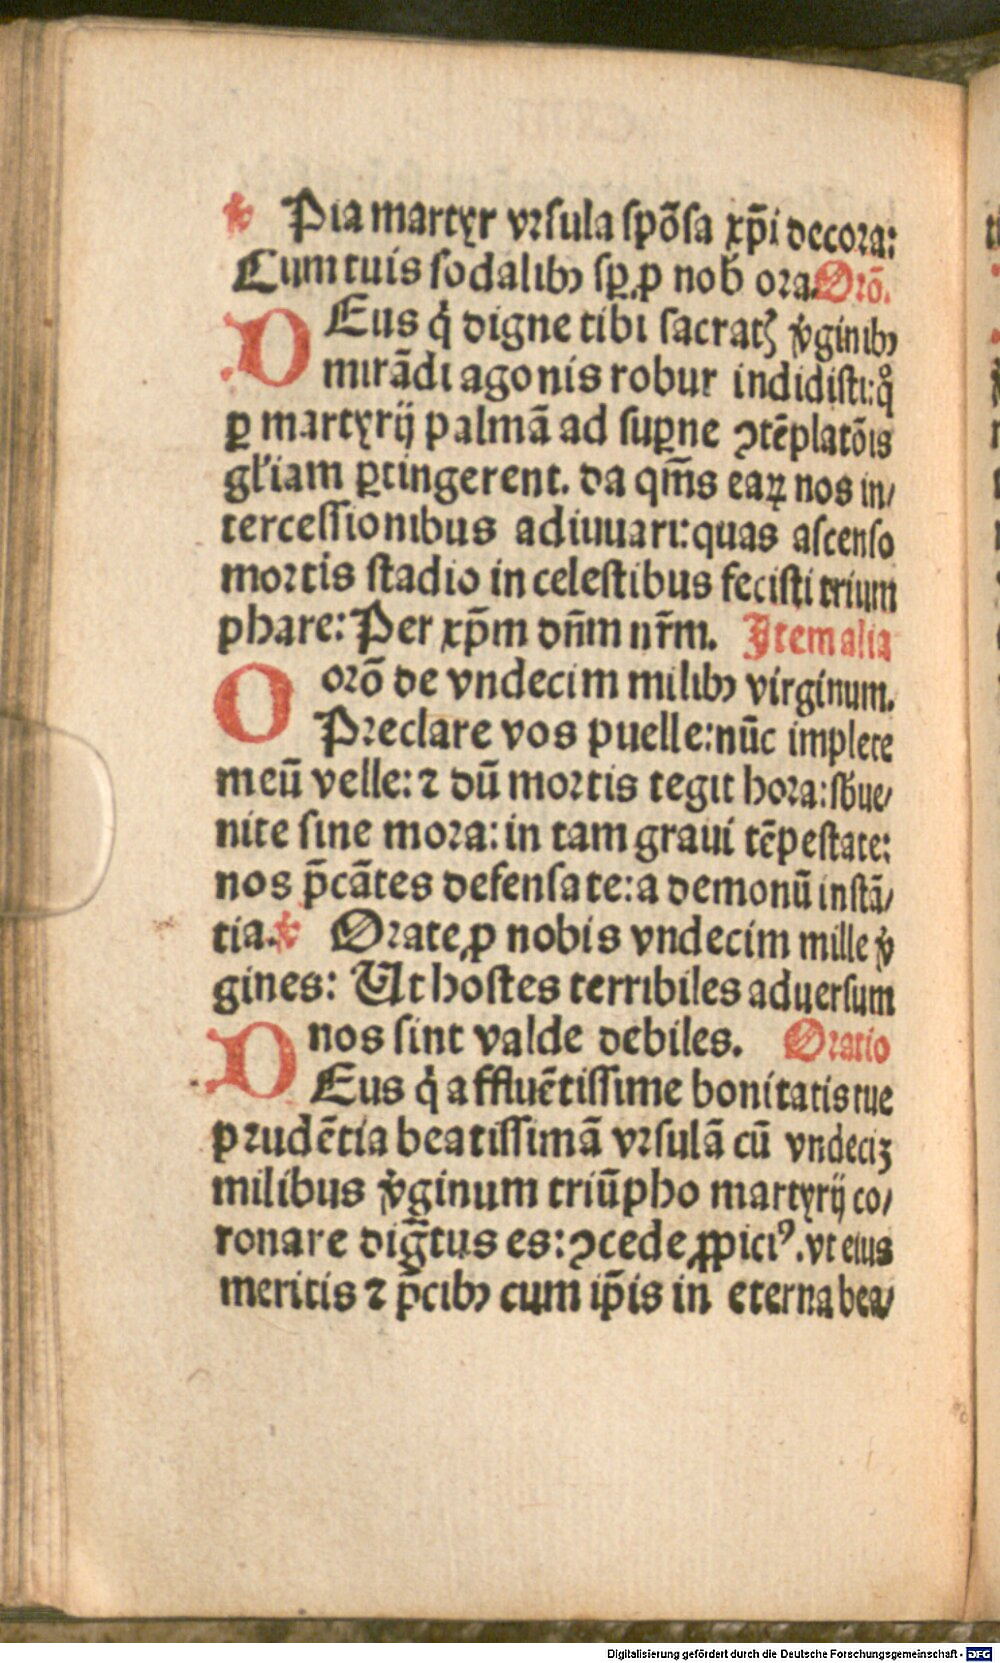 ℣ Pia martyr vrsula spõsa xp̃i decora:
Cum tuis sodalibꝫ sꝑ ꝓ nob̃ ora. Orõ.
DEus q̇ digne tibi sacratꝫ v̇ginibꝫ
mirãdi agonis robur indidisti: q̊
ꝑ martyrij palmã ad suꝑne ꝯtẽplatõis
gl'iam ꝑtingerent. da qm̃s eaꝝ nos in/
tercessionibus adiuuari: quas ascenso
mortis stadio in celestibus fecisti trium
phare: Per xp̃m dñm nr̃m. Item alia
orõ de vndecim milibꝫ virginum.
O Preclare vos puelle: nũc implete
meũ velle: ⁊ dũ mortis tegit hora: sb̃ue/
nite sine mora: in tam graui tẽpestate:
nos p̃cãtes defensate: a demonũ instã/
tia. ℣ Orate ꝓ nobis vndecim mille v̇
gines: Ut hostes terribiles aduersum
nos sint valde debiles. Oratio
DEus q̇ affluẽtissime bonitatis tue
prudẽtia beatissimã vrsulã cũ vndeciꝫ
milibus v̇ginum triũpho martyrij co/
ronare dig̃tus es: ꝯcede ꝓpiciꝰ. vt eius
meritis ⁊ p̃cibꝫ cum ip̃is in eterna bea/
Digitalisierung gefördert durch die Deutsche Forschungsgemeinschaft - DFG